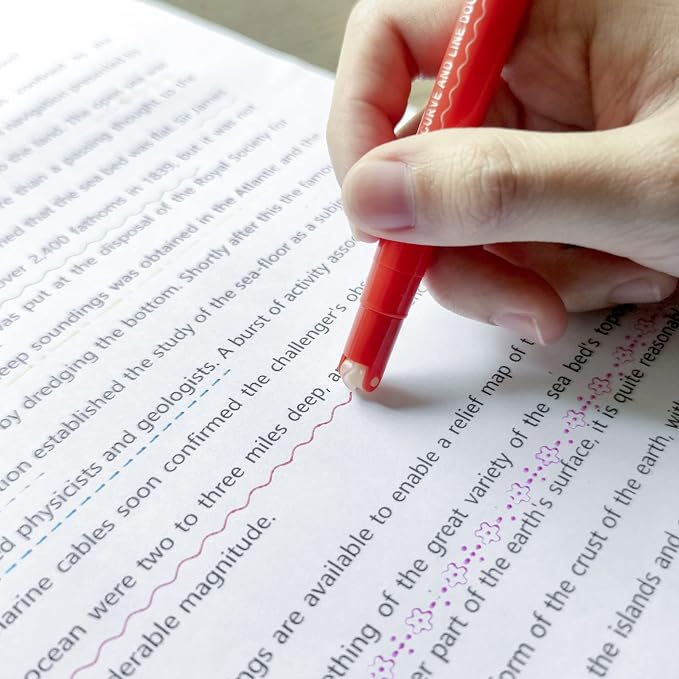 CURVE AND LINE DOU
navigation presented by
to the land. The open sea was
than a passing thought, in the
ned that the sea bed was flat. Sir James
over 2,400 fathoms in 1839, but it was not
was put at the disposal of the Royal Society for
eep soundings was obtained in the Atlantic and the
by dredging the bottom. Shortly after this the famou
tion established the study of the sea-floor as a subje
d physicists and geologists. A burst of activity asso
arine cables soon confirmed the challenger's obs
ocean were two to three miles deep, a
derable magnitude.
ngs are available to enable a relief map of t
ething of the great variety of the sea bed's topo
er part of the earth's surface, it is quite reasonabl
orm of the crust of the earth, with
the islands and